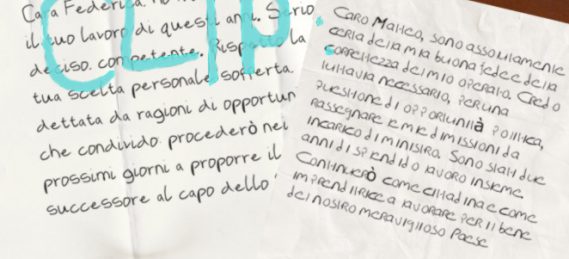 Cara Federica
il tuo lavoro di questi anni. Serio
deciso. competente. Rispetto la
tua scelta personale sofferta.
dettata da ragioni di opportun
che condivido. procederò nei
prossimi giorni a proporre il
successore al capo dello
CLIP.
CARO Matteo, sono assolutamente
certa della mia buona fede e della
correttezza del mio operato. Credo
tuttavia necessario, per una
questione di opportunità politica,
rassegnare le mie dimissioni da
incarico di ministro. Sono stati due
anni di splendido lavoro insieme.
Continuerò come cittadina e come
imprenditrice a lavorare per il bene
del nostro meraviglioso Paese